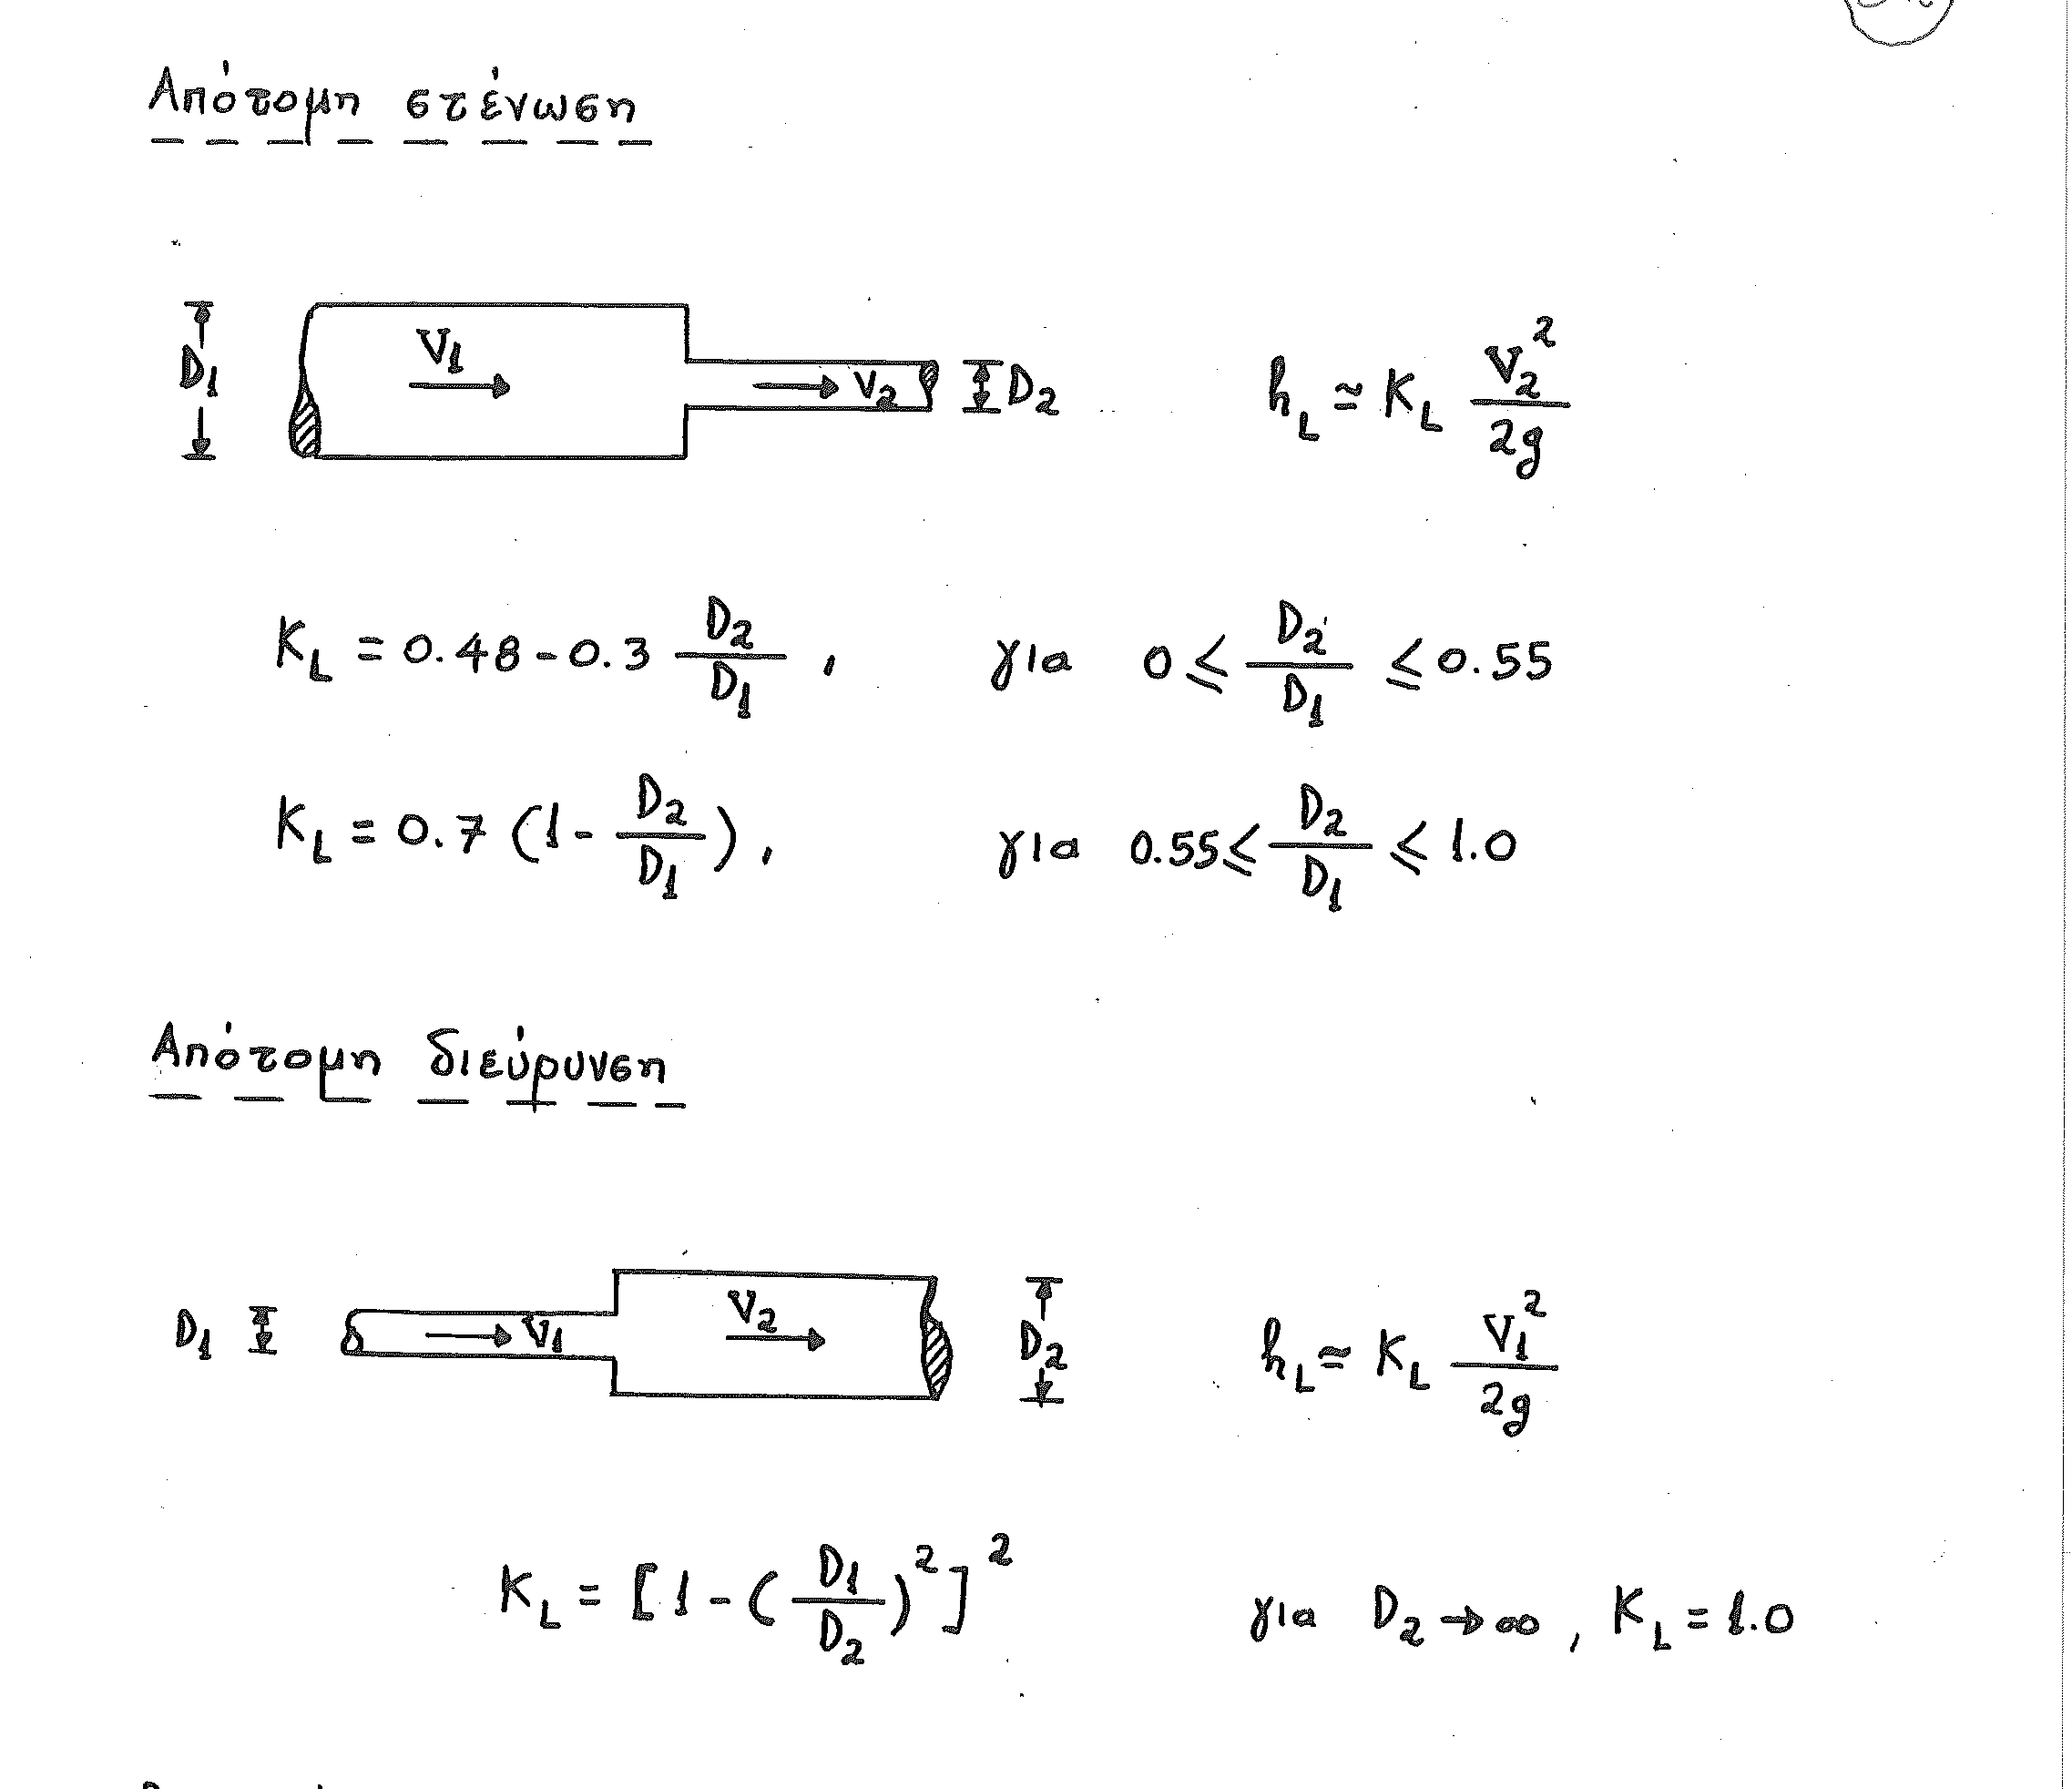 Απότομη στένωση
D₁ V₁ V₂ D₂ h_L ≃ K_L V₂²/2g
K_L = 0.48 - 0.3 D₂/D₁ , για 0 ≤ D₂/D₁ ≤ 0.55
K_L = 0.7 (1 - D₂/D₁) , για 0.55 ≤ D₂/D₁ ≤ 1.0
Απότομη διεύρυνση
D₁ V₁ V₂ D₂ h_L ≃ K_L V₁²/2g
K_L = [1 - (D₁/D₂)²]² για D₂ → ∞ , K_L = 1.0